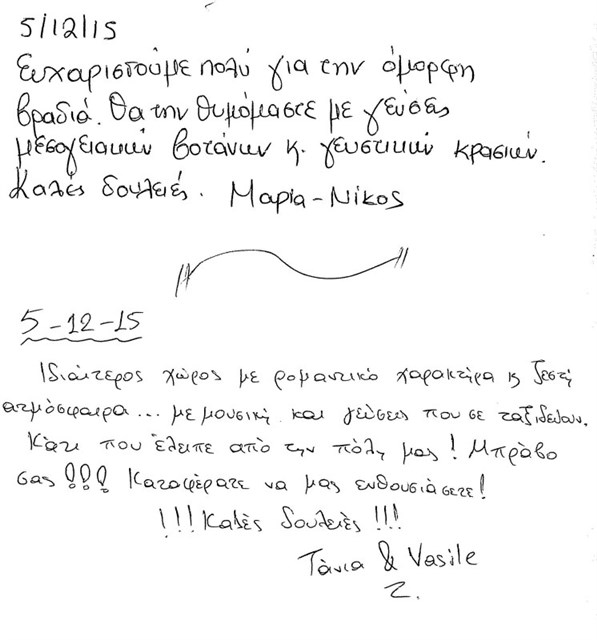 5/12/15
Ευχαριστούμε πολύ για την όμορφη
βραδιά. Θα την θυμόμαστε με γεύσεις
μεσογειακών βοτάνων κ. γευστικών κρασιών.
Καλές δουλειές. Μαρία-Νίκος
5-12-15
Ιδιαίτερος χώρος με ρομαντικό χαρακτήρα κ ζεστή
ατμόσφαιρα... με μουσική και γεύσεις που σε ταξιδεύουν.
Κάτι που έλειπε από την πόλη μας! Μπράβο
σας!!! Καταφέρατε να μας ενθουσιάσετε!
!!!Καλές δουλειές!!!
Τάνια & Vasile
Z.